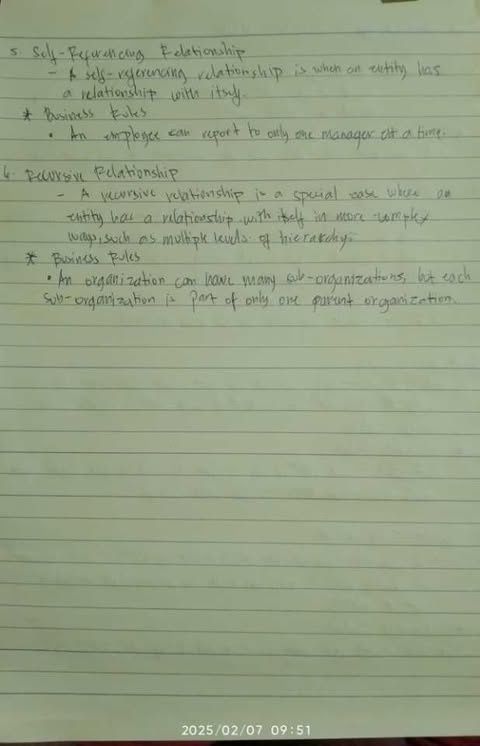 5. Self-Referencing Relationship
- A self-referencing relationship is when an entity has
a relationship with itself.
* Business Rules
• An employee can report to only one manager at a time.
6. Recursive Relationship
- A recursive relationship is a special case where an
entity has a relationship with itself in more complex
ways, such as multiple levels of hierarchy.
* Business Rules
• An organization can have many sub-organizations, but each
sub-organization is part of only one parent organization.
2025/02/07 09:51